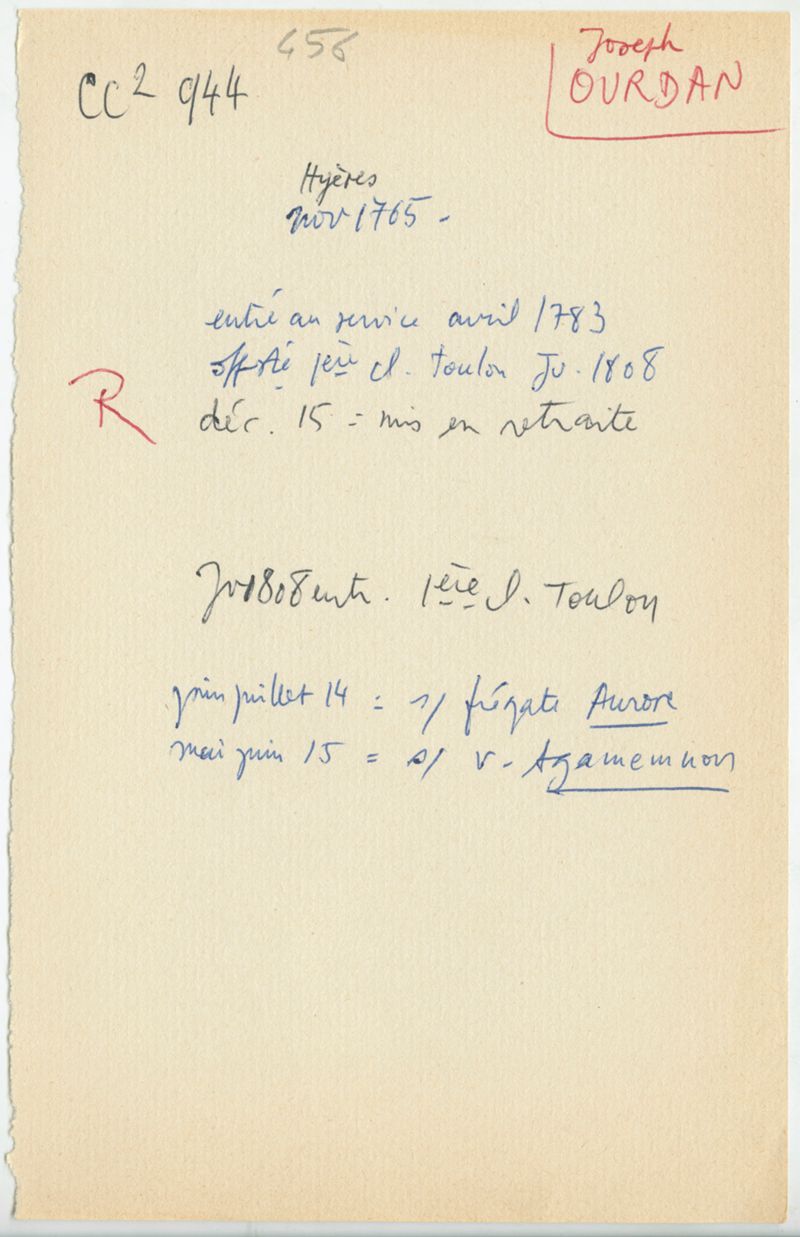 456
Joseph
OURDAN
CC2 944
Hyères
nov 1765 -
entré au service avril 1783
off sté 1ère cl. Toulon Jv. 1808
R
déc. 15 = mis en retraite
Jv 1808 entr. 1ère cl. Toulon
juin juillet 14 = s/ frégate Aurore
mai juin 15 = s/ v. Agamemnon